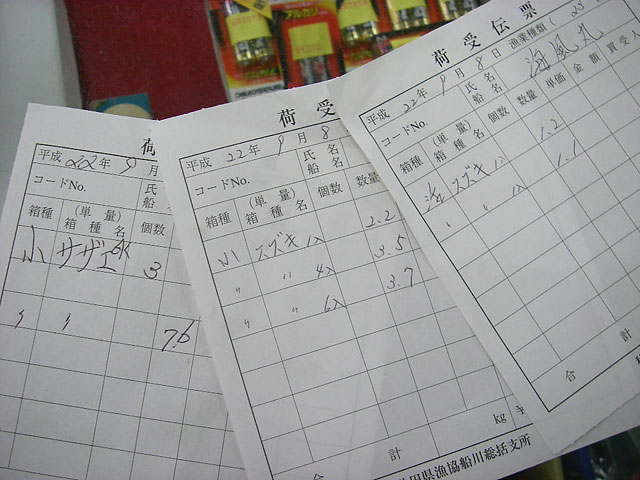 アルカリ
荷
平成 22年 9月
コードNo.
氏
船
箱種
(単量)
箱種名
個数
小 サザエ 3
〃 〃 7.6
荷受
平成 22年 9月 8
コードNo.
氏名
船名
箱種
(単量)
箱種名
個数
数量
小 スズキ 2.2
〃 〃 4入 3.5
〃 〃 6入 3.7
合計
kg
県漁協船川総括支所
荷受伝票
平成 22年 9月 8日
漁業種類(
コードNo.
氏名
船名
海風丸
箱種
(単量)
箱種名
個数
数量
単価
金額
買受人
スズキ 1.2
〃 〃 1.1
合計